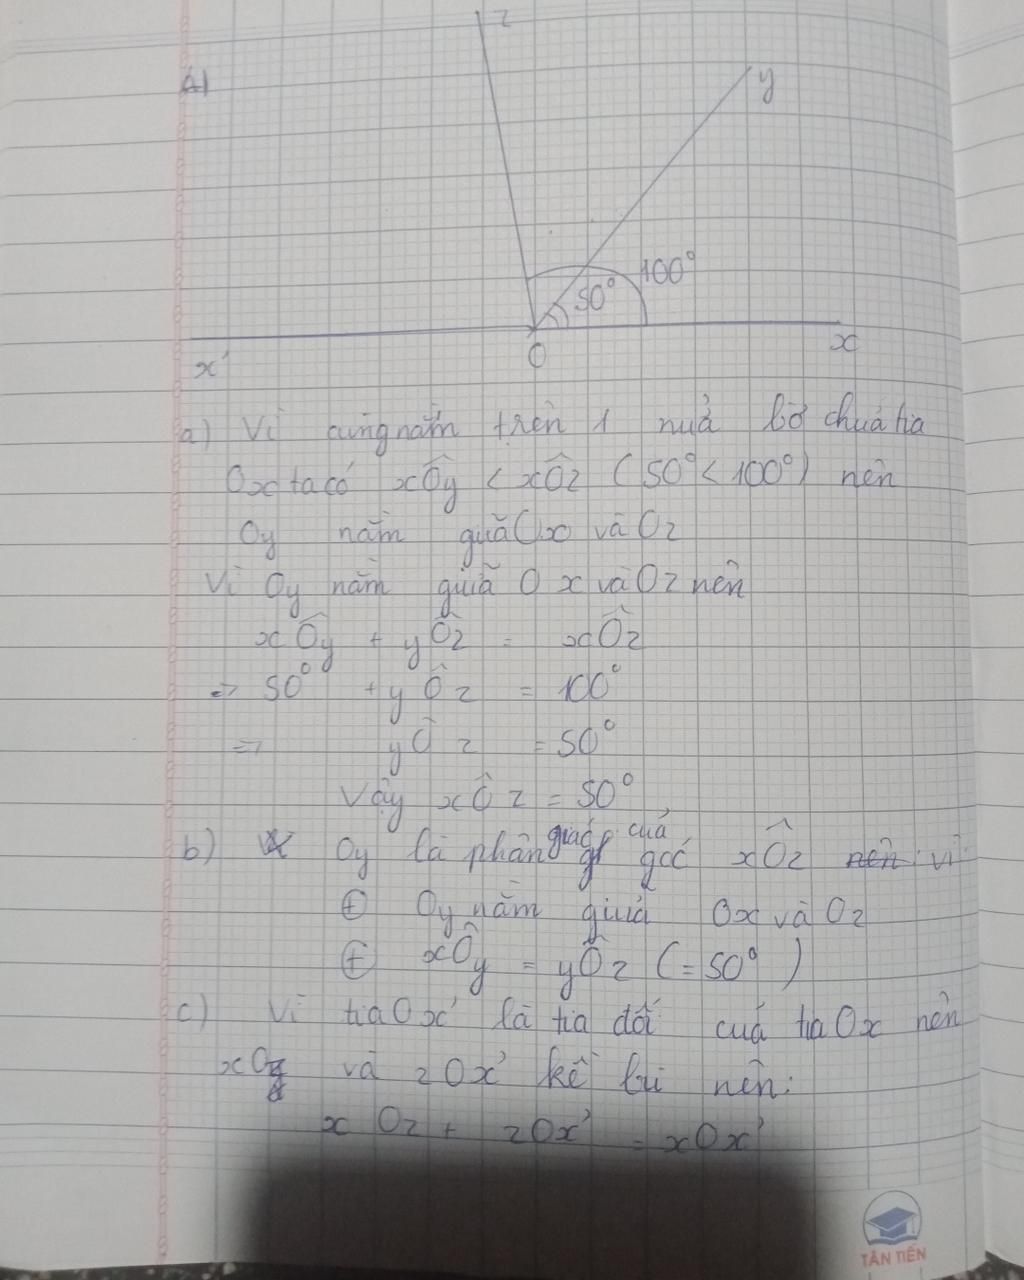 z
A1
y
100°
50°
x'
O
x
a) Vì cùng nằm trên 1 nửa bờ chứa tia
Ox ta có xÔy < xÔz (50° < 100°) nên
Oy nằm giữa Ox và Oz
Vì Oy nằm giữa Ox và Oz nên
xÔy + yÔz = xÔz
=> 50° + yÔz = 100°
=> yÔz = 50°
Vậy xÔz = 50°
b) Oy là phân giác của góc xÔz nên vì
⊕ Oy nằm giữa Ox và Oz
⊕ xÔy = yÔz (= 50°)
c) Vì tia Ox' là tia đối của tia Ox nên
xOz và zOx' kề bù nên:
xOz + zOx' = xOx'
TÂN TIẾN